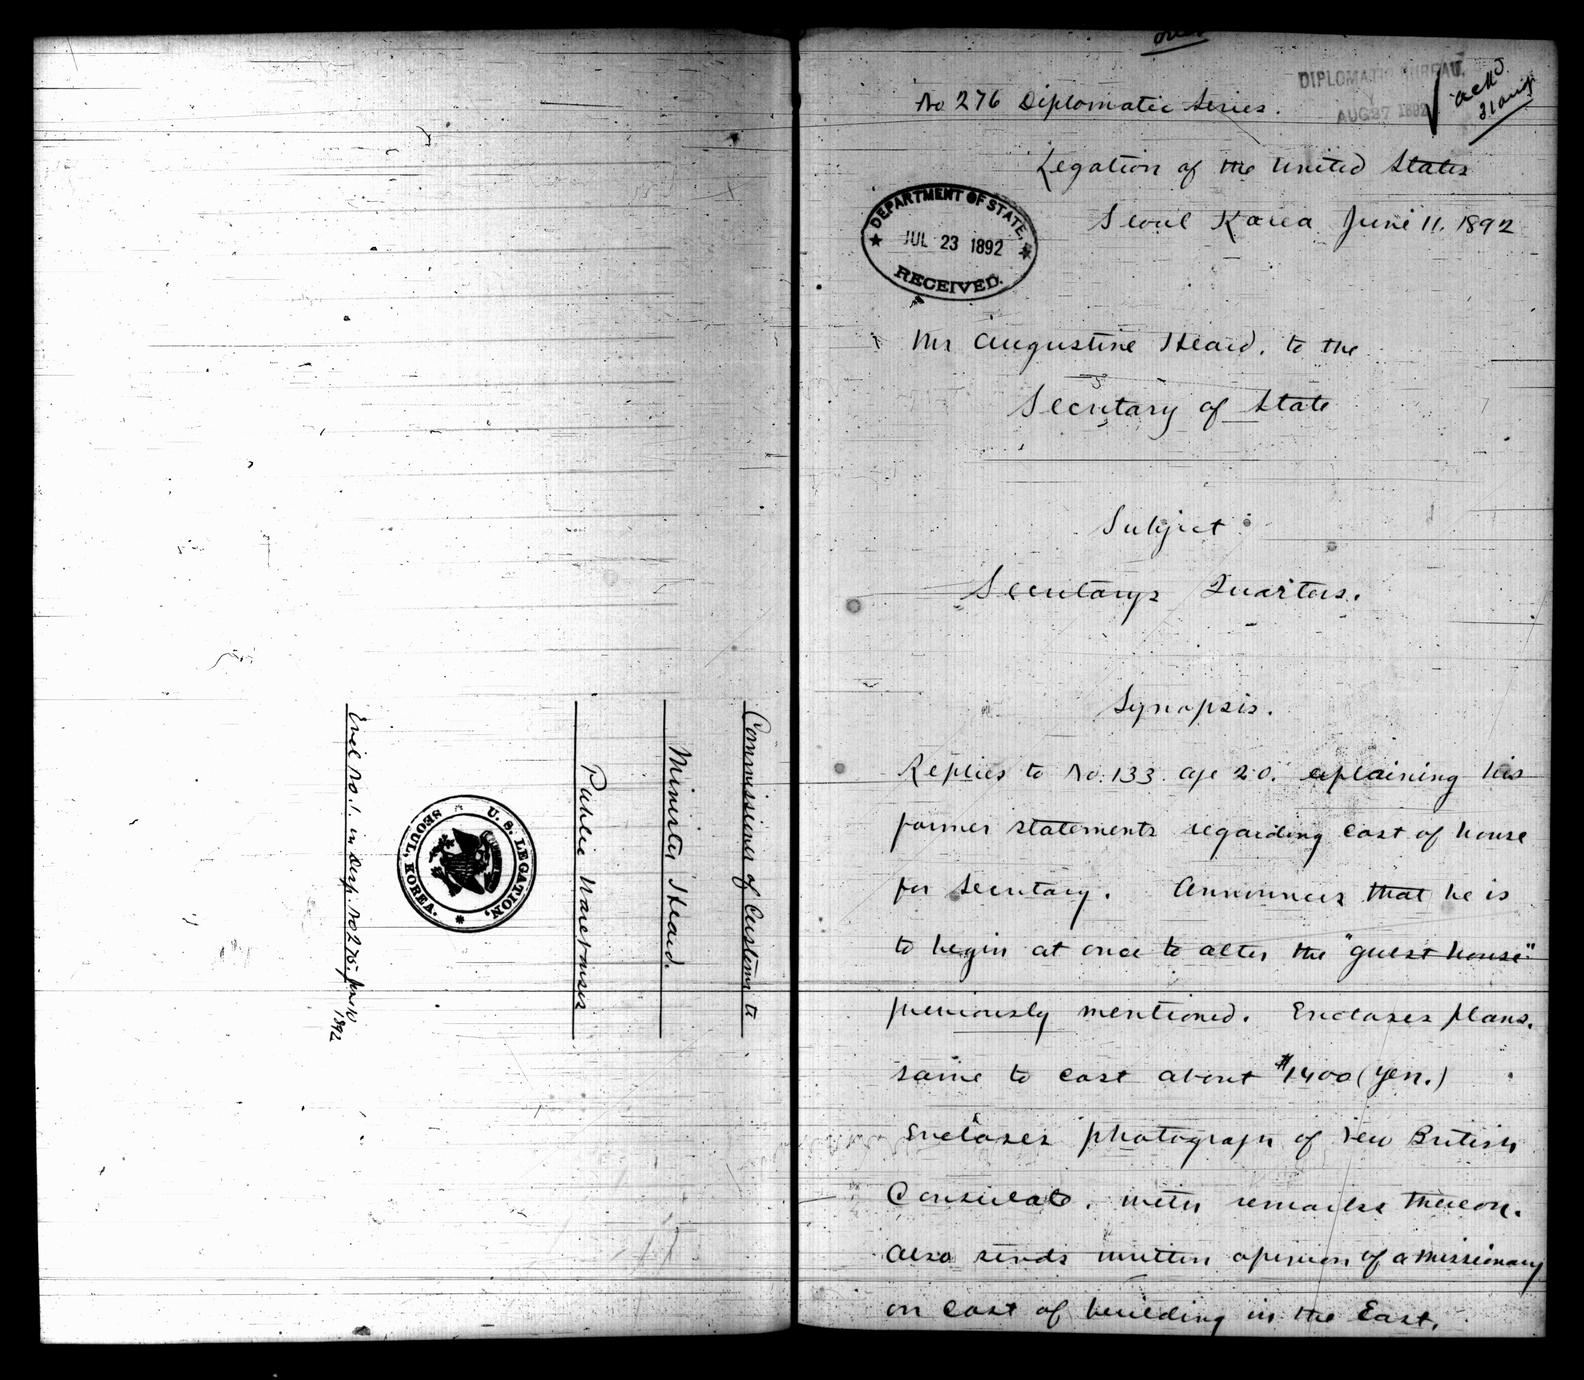 Commissioner of Customs to
Minister Heard.
Public Warehouses
U. S. LEGATION,
SEOUL, KOREA.
Encl No. 1. in Desp. No 275. June 10
1892
over
No 276 Diplomatic Series.
DIPLOMATIC BUREAU,
AUG 27 1892
ackd
31 aug
Legation of the United States
Seoul Korea June 11. 1892
DEPARTMENT OF STATE,
JUL 23 1892
RECEIVED.
Mr Augustine Heard. to the
Secretary of State
Subject:
Secretarys Quarters.
Synopsis.
Replies to No. 133. Apl 20. explaining his
former statements regarding cost of house
for Secretary. Announces that he is
to begin at once to alter the "guest house"
previously mentioned. Encloses plans.
same to cost about $1400 (yen.)
Encloses photograph of new British
Consulate. with remarks thereon.
Also sends written opinion of a missionary
on cost of building in the East.